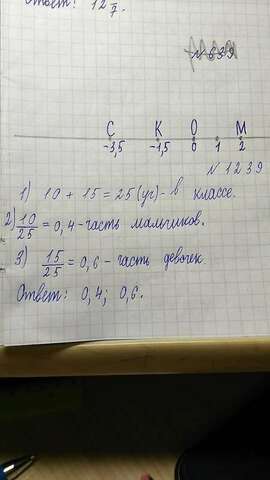 Ответ: 12 /7.
№ 639
С К О М
-3,5 -1,5 0 1 2
№ 1239
1) 10 + 15 = 25 (уч) - в классе.
2) 10/25 = 0,4 - часть мальчиков.
3) 15/25 = 0,6 - часть девочек
Ответ: 0,4; 0,6.